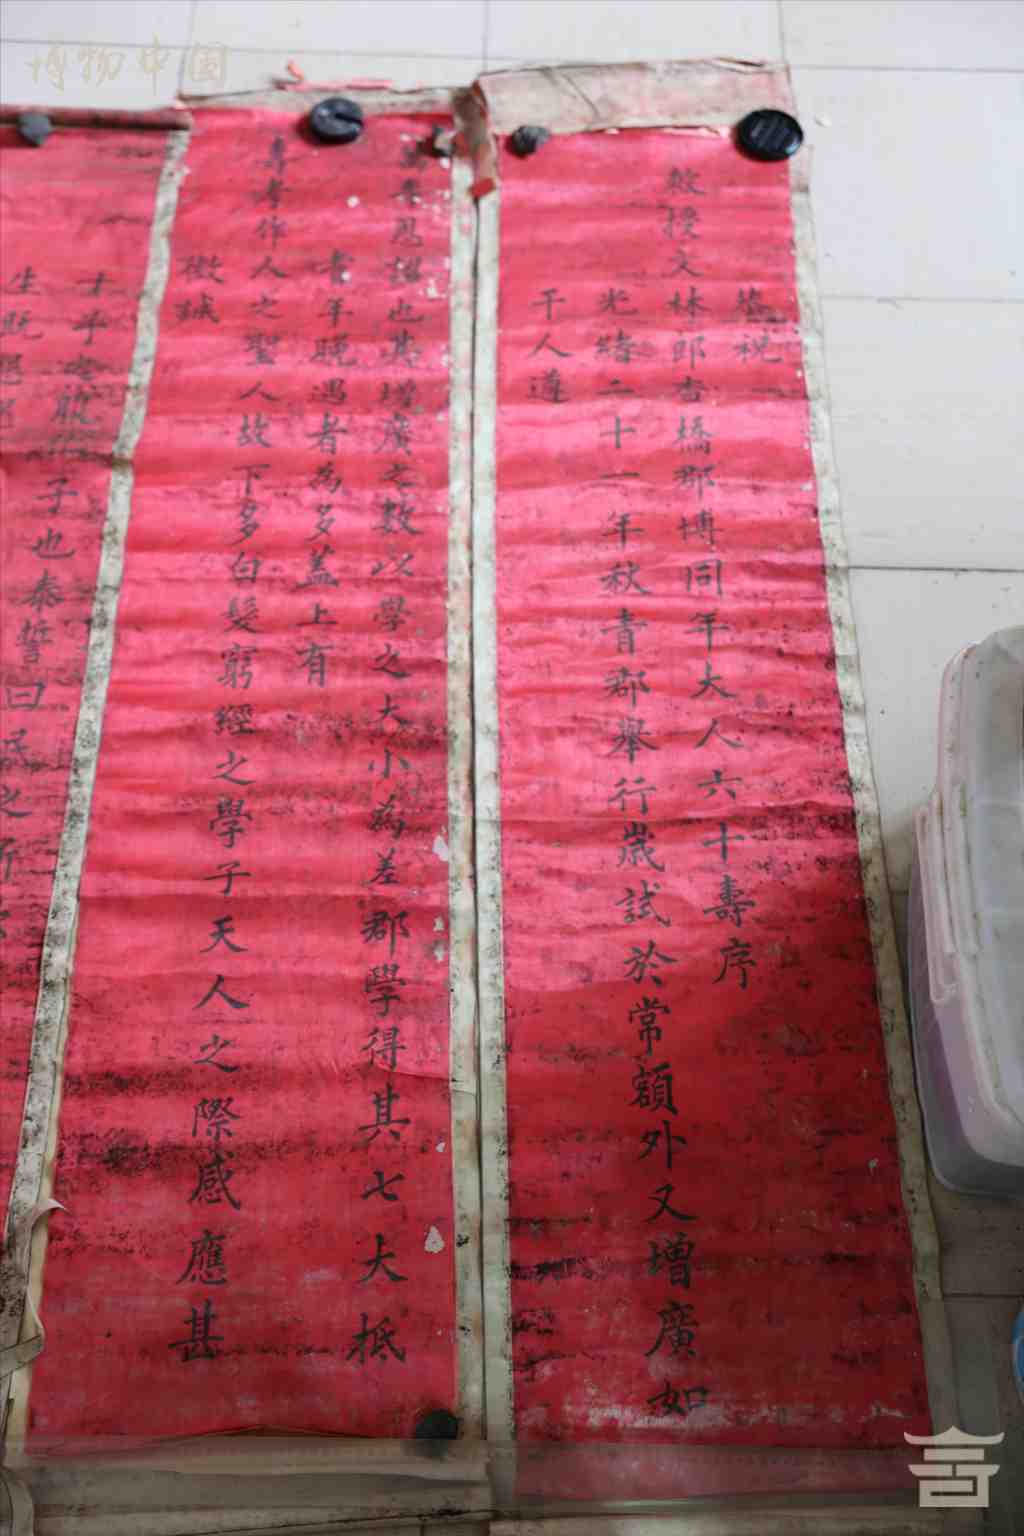 恭祝
敕授文林郎杏橋郡博同年大人六十壽序
光緒二十一年秋青郡舉行歲試於常額外又增廣如
干人遵
恩詔也其增廣之數以學之大小為差郡學得其七大抵
年晚遇者為多蓋上有
壽考作人之聖人故下多白髮窮經之學子天人之際感應甚
微誠
子也泰誓曰民之所
生既
博物中国